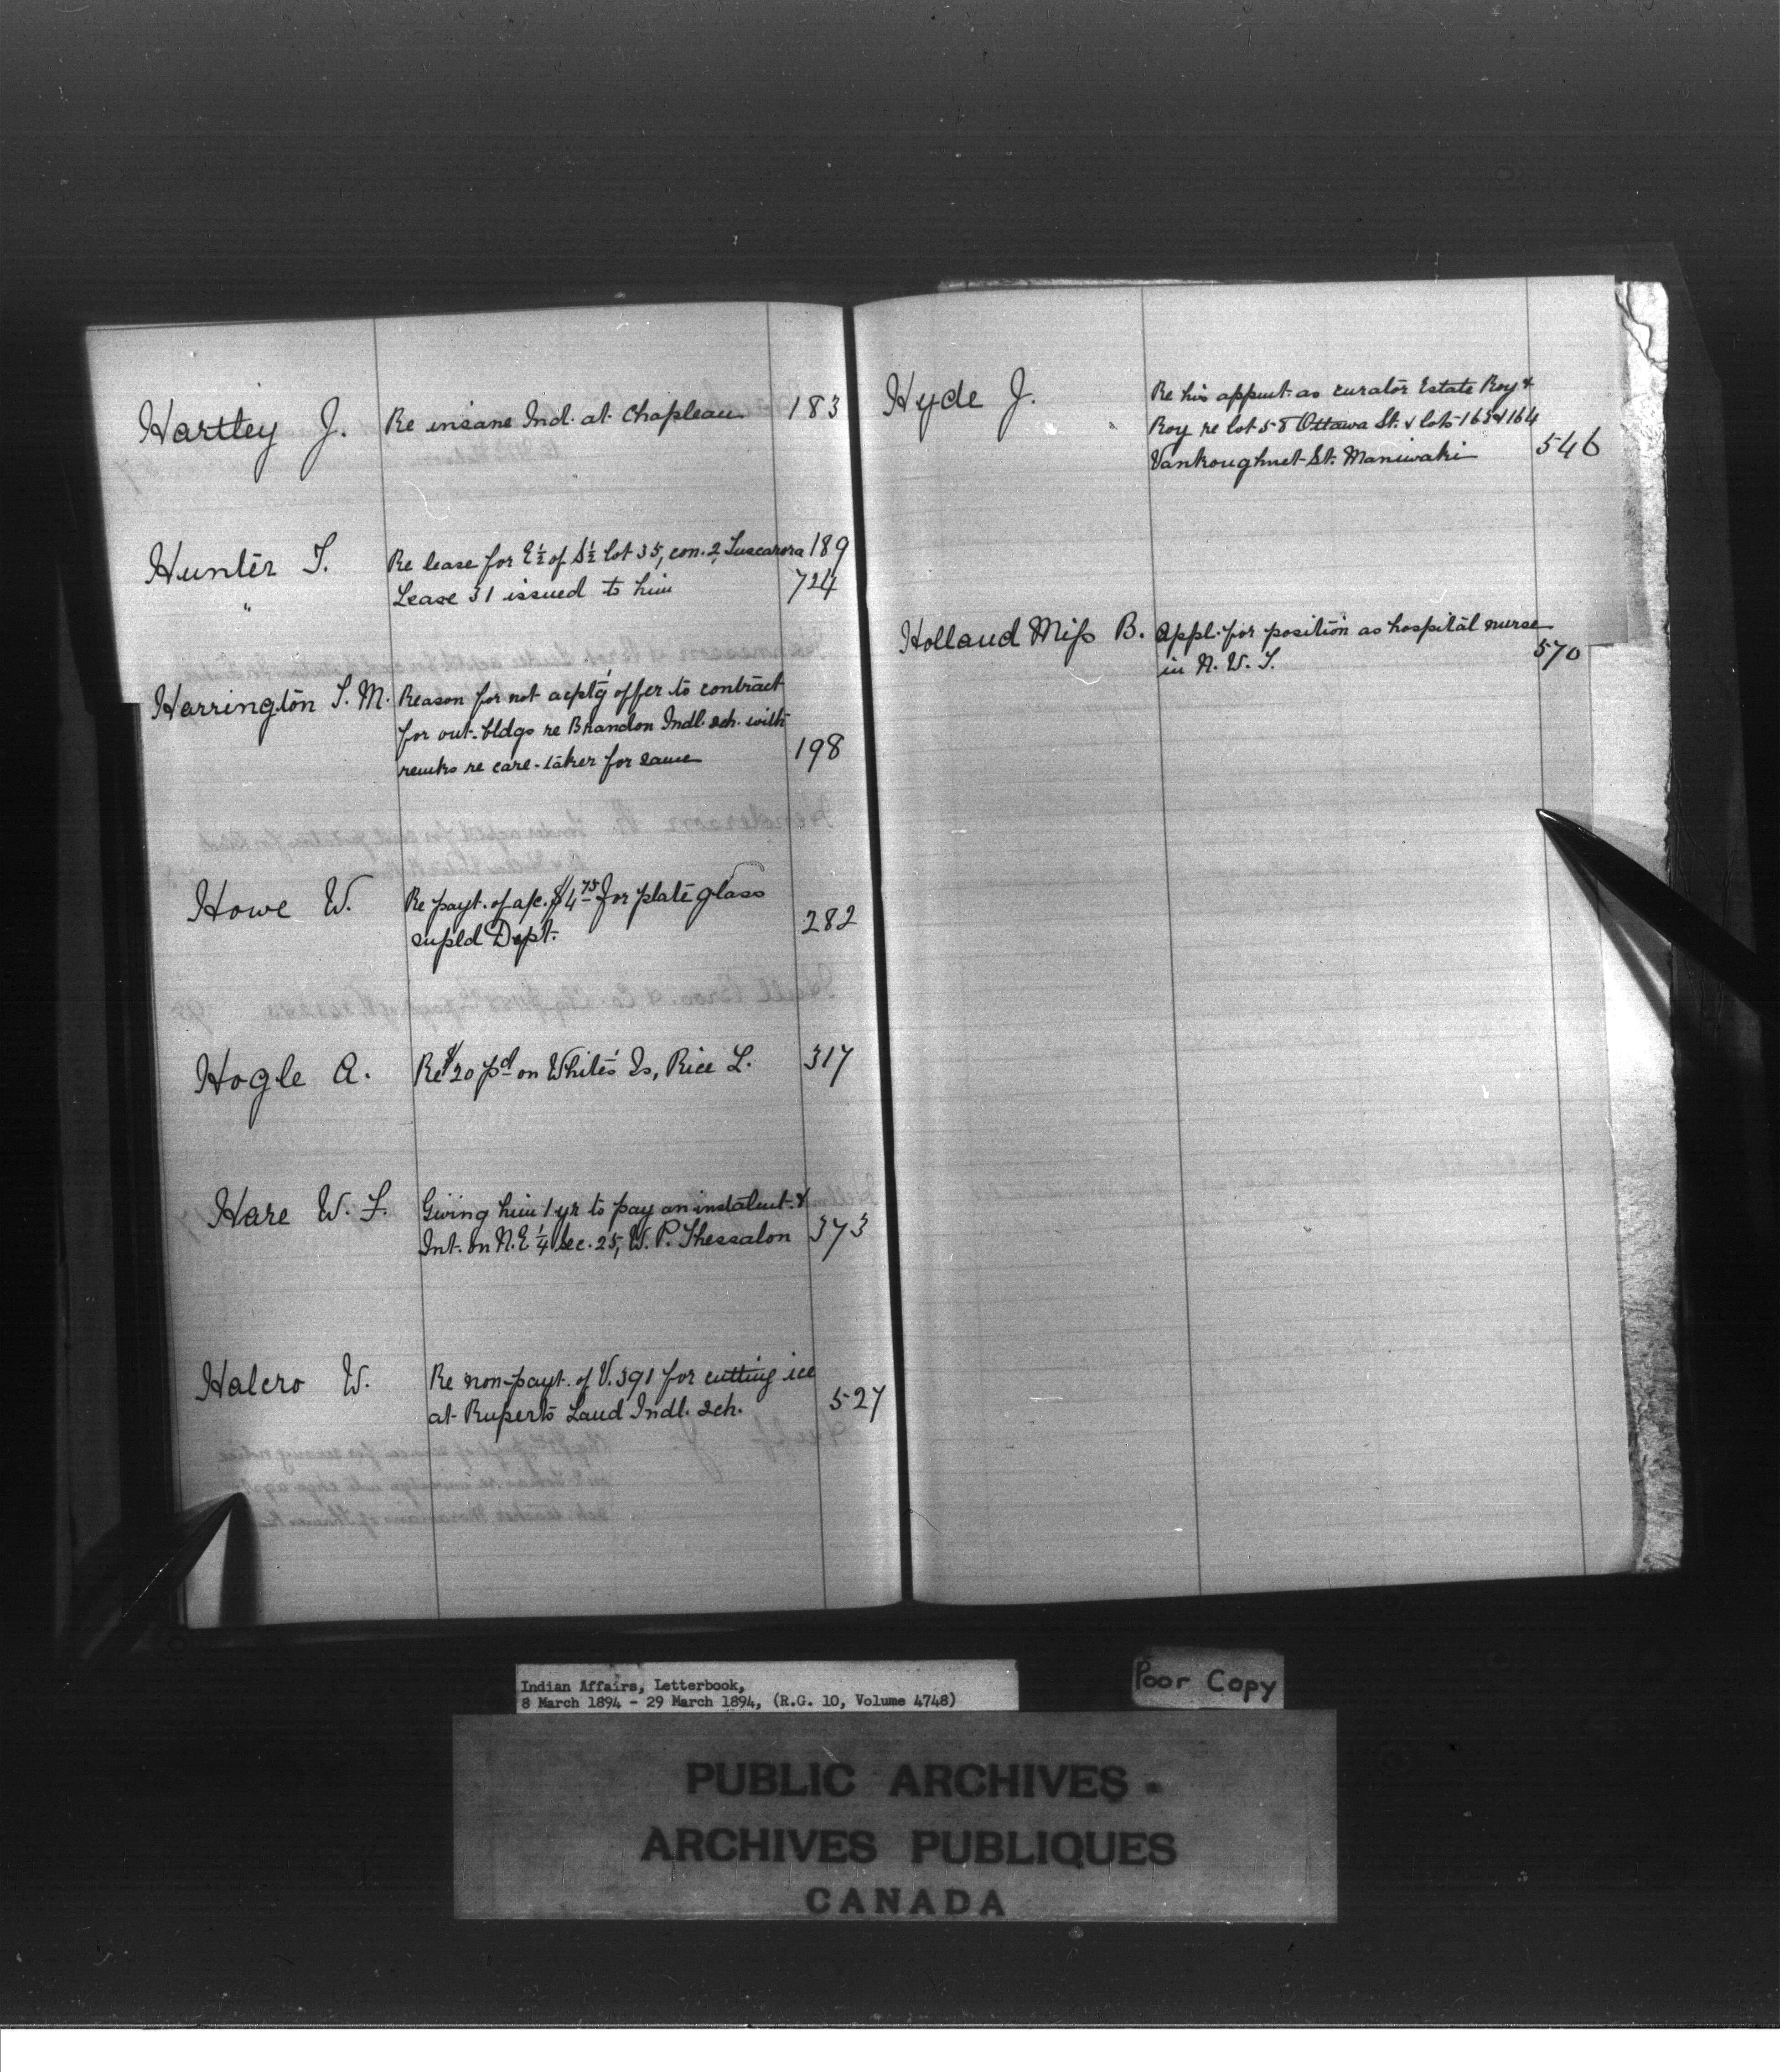 Hartley J. Re insane Ind. at Chapleau 183
Hunter T. Re lease for E½ of S½ lot 35, con. 2, Tuscarora 189
" Lease 31 issued to him 724
Harrington T. M. Reason for not acptg' offer to contract
for out-bldgs re Brandon Indl. sch. with
remks re care-taker for same 198
Howe W. Re payt. of a/c. $4.75 for plate glass
supld Dept. 282
Hogle A. Re $20 pd on White's Is, Rice L. 317
Hare W. F. Giving him 1 yr to pay an instalmt. &
Int. on N.E. ¼ sec. 25, W. P. Thessalon 373
Halcro W. Re non-payt. of V. 391 for cutting ice
at Ruperts Land Indl. sch. 527
Hyde J. Re his appmt. as curator Estate Roy &
Roy re lot 58 Ottawa St. & lots 163 & 164
Vankoughnet St. Maniwaki 546
Holland Miss B. Appl. for position as hospital nurse
in N. W. T. 570
Indian Affairs, Letterbook,
8 March 1894 - 29 March 1894, (R.G. 10, Volume 4748)
Poor Copy
PUBLIC ARCHIVES
ARCHIVES PUBLIQUES
CANADA